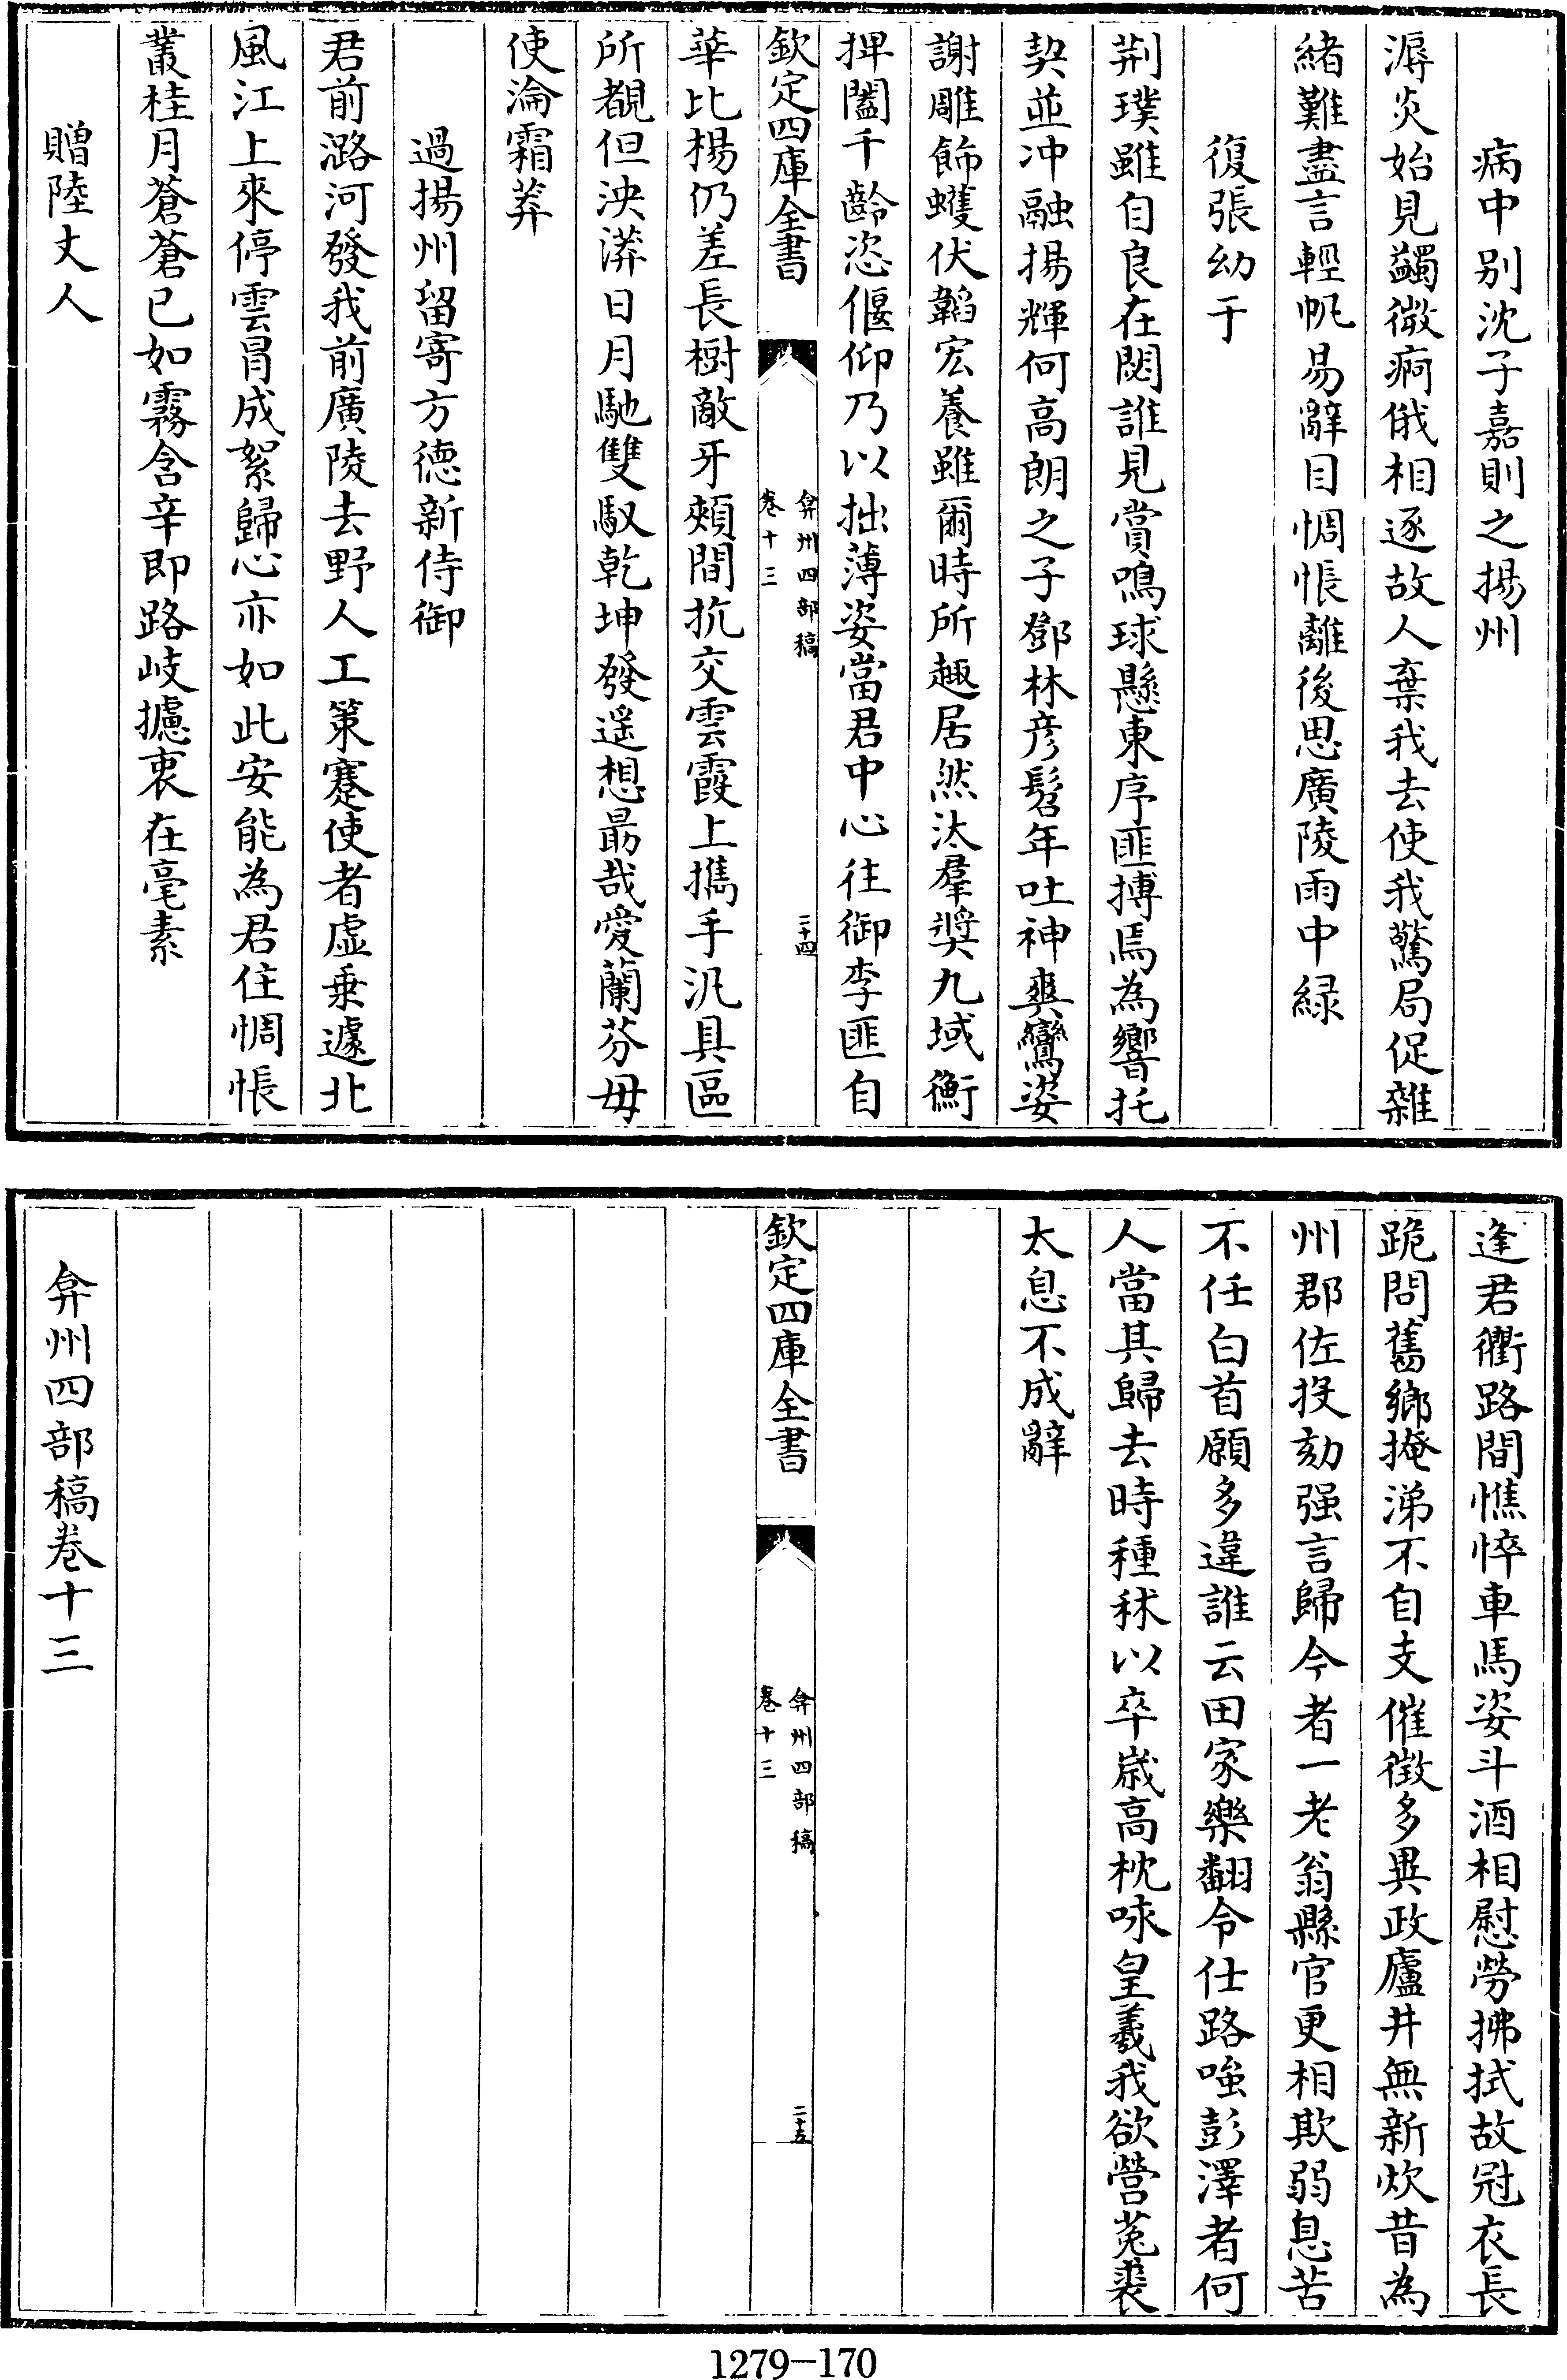 病中别沈子嘉則之揚州
溽炎始見蠲微痾俄相逐故人棄我去使我驚局促雜
緒難盡言輕帆易辭目惆悵離後思廣陵雨中綠
復張幼于
荆璞雖自良在閟誰見賞鳴球懸東序匪搏焉為響托
契並冲融揚輝何高朗之子鄧林彦髫年吐神爽鸞姿
謝雕飾蠖伏韜宏養雖爾時所趣居然汰羣奬九域衡
捭闔千齡恣偃仰乃以拙薄姿當君中心往御李匪自
欽定四庫全書
弇州四部稿
卷十三
二十四
華比楊仍差長樹敵牙頰間抗交雲霞上攜手汎具區
所覩但泱漭日月馳雙馭乾坤發遥想朂哉愛蘭芬毋
使淪霜莽
過揚州留寄方德新侍御
君前潞河發我前廣陵去野人工策蹇使者虛乗遽北
風江上來停雲冒成絮歸心亦如此安能為君住惆悵
叢桂月蒼蒼已如霧含辛即路岐攄衷在毫素
贈陸丈人
逢君衢路間憔悴車馬姿斗酒相慰勞拂拭故冠衣長
跪問舊鄉掩涕不自支催徵多異政廬井無新炊昔為
州郡佐投劾强言歸今者一老翁縣官更相欺弱息苦
不任白首願多違誰云田家樂翻令仕路嗤彭澤者何
人當其歸去時種秫以卒嵗高枕咏皇羲我欲營菟裘
太息不成辭
欽定四庫全書
弇州四部稿
卷十三
二十五
弇州四部稿卷十三
1279-170